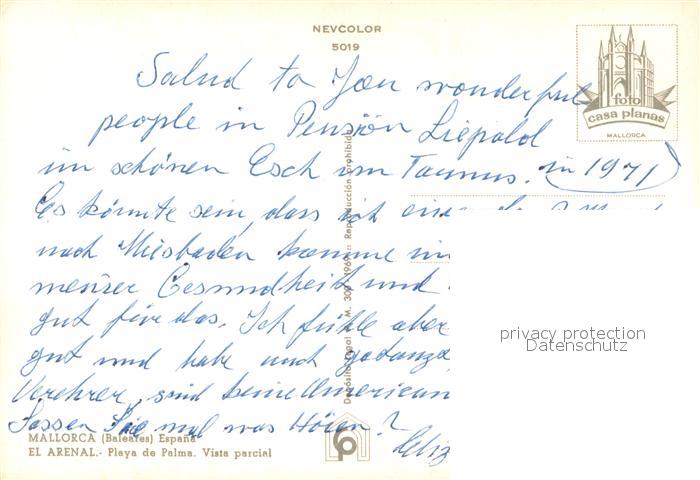 NEVCOLOR
5019
foto
casa planas
MALLORCA
Salud to You wonderful
people in Pension Liepold
im schönen Esch im Taunus. in 1971
Es könnte sein, dass ich
nach Wiesbaden komme
meiner Gesundheit und
gut für das. Ich fühle aber
gut und habe auch
Verehrer, sind keine American
Lassen Sie mal was Hören?
Depósito Legal B. M. 300 - 1969 :: Reproducción prohibida
privacy protection
Datenschutz
MALLORCA (Baleares) España
EL ARENAL.- Playa de Palma. Vista parcial